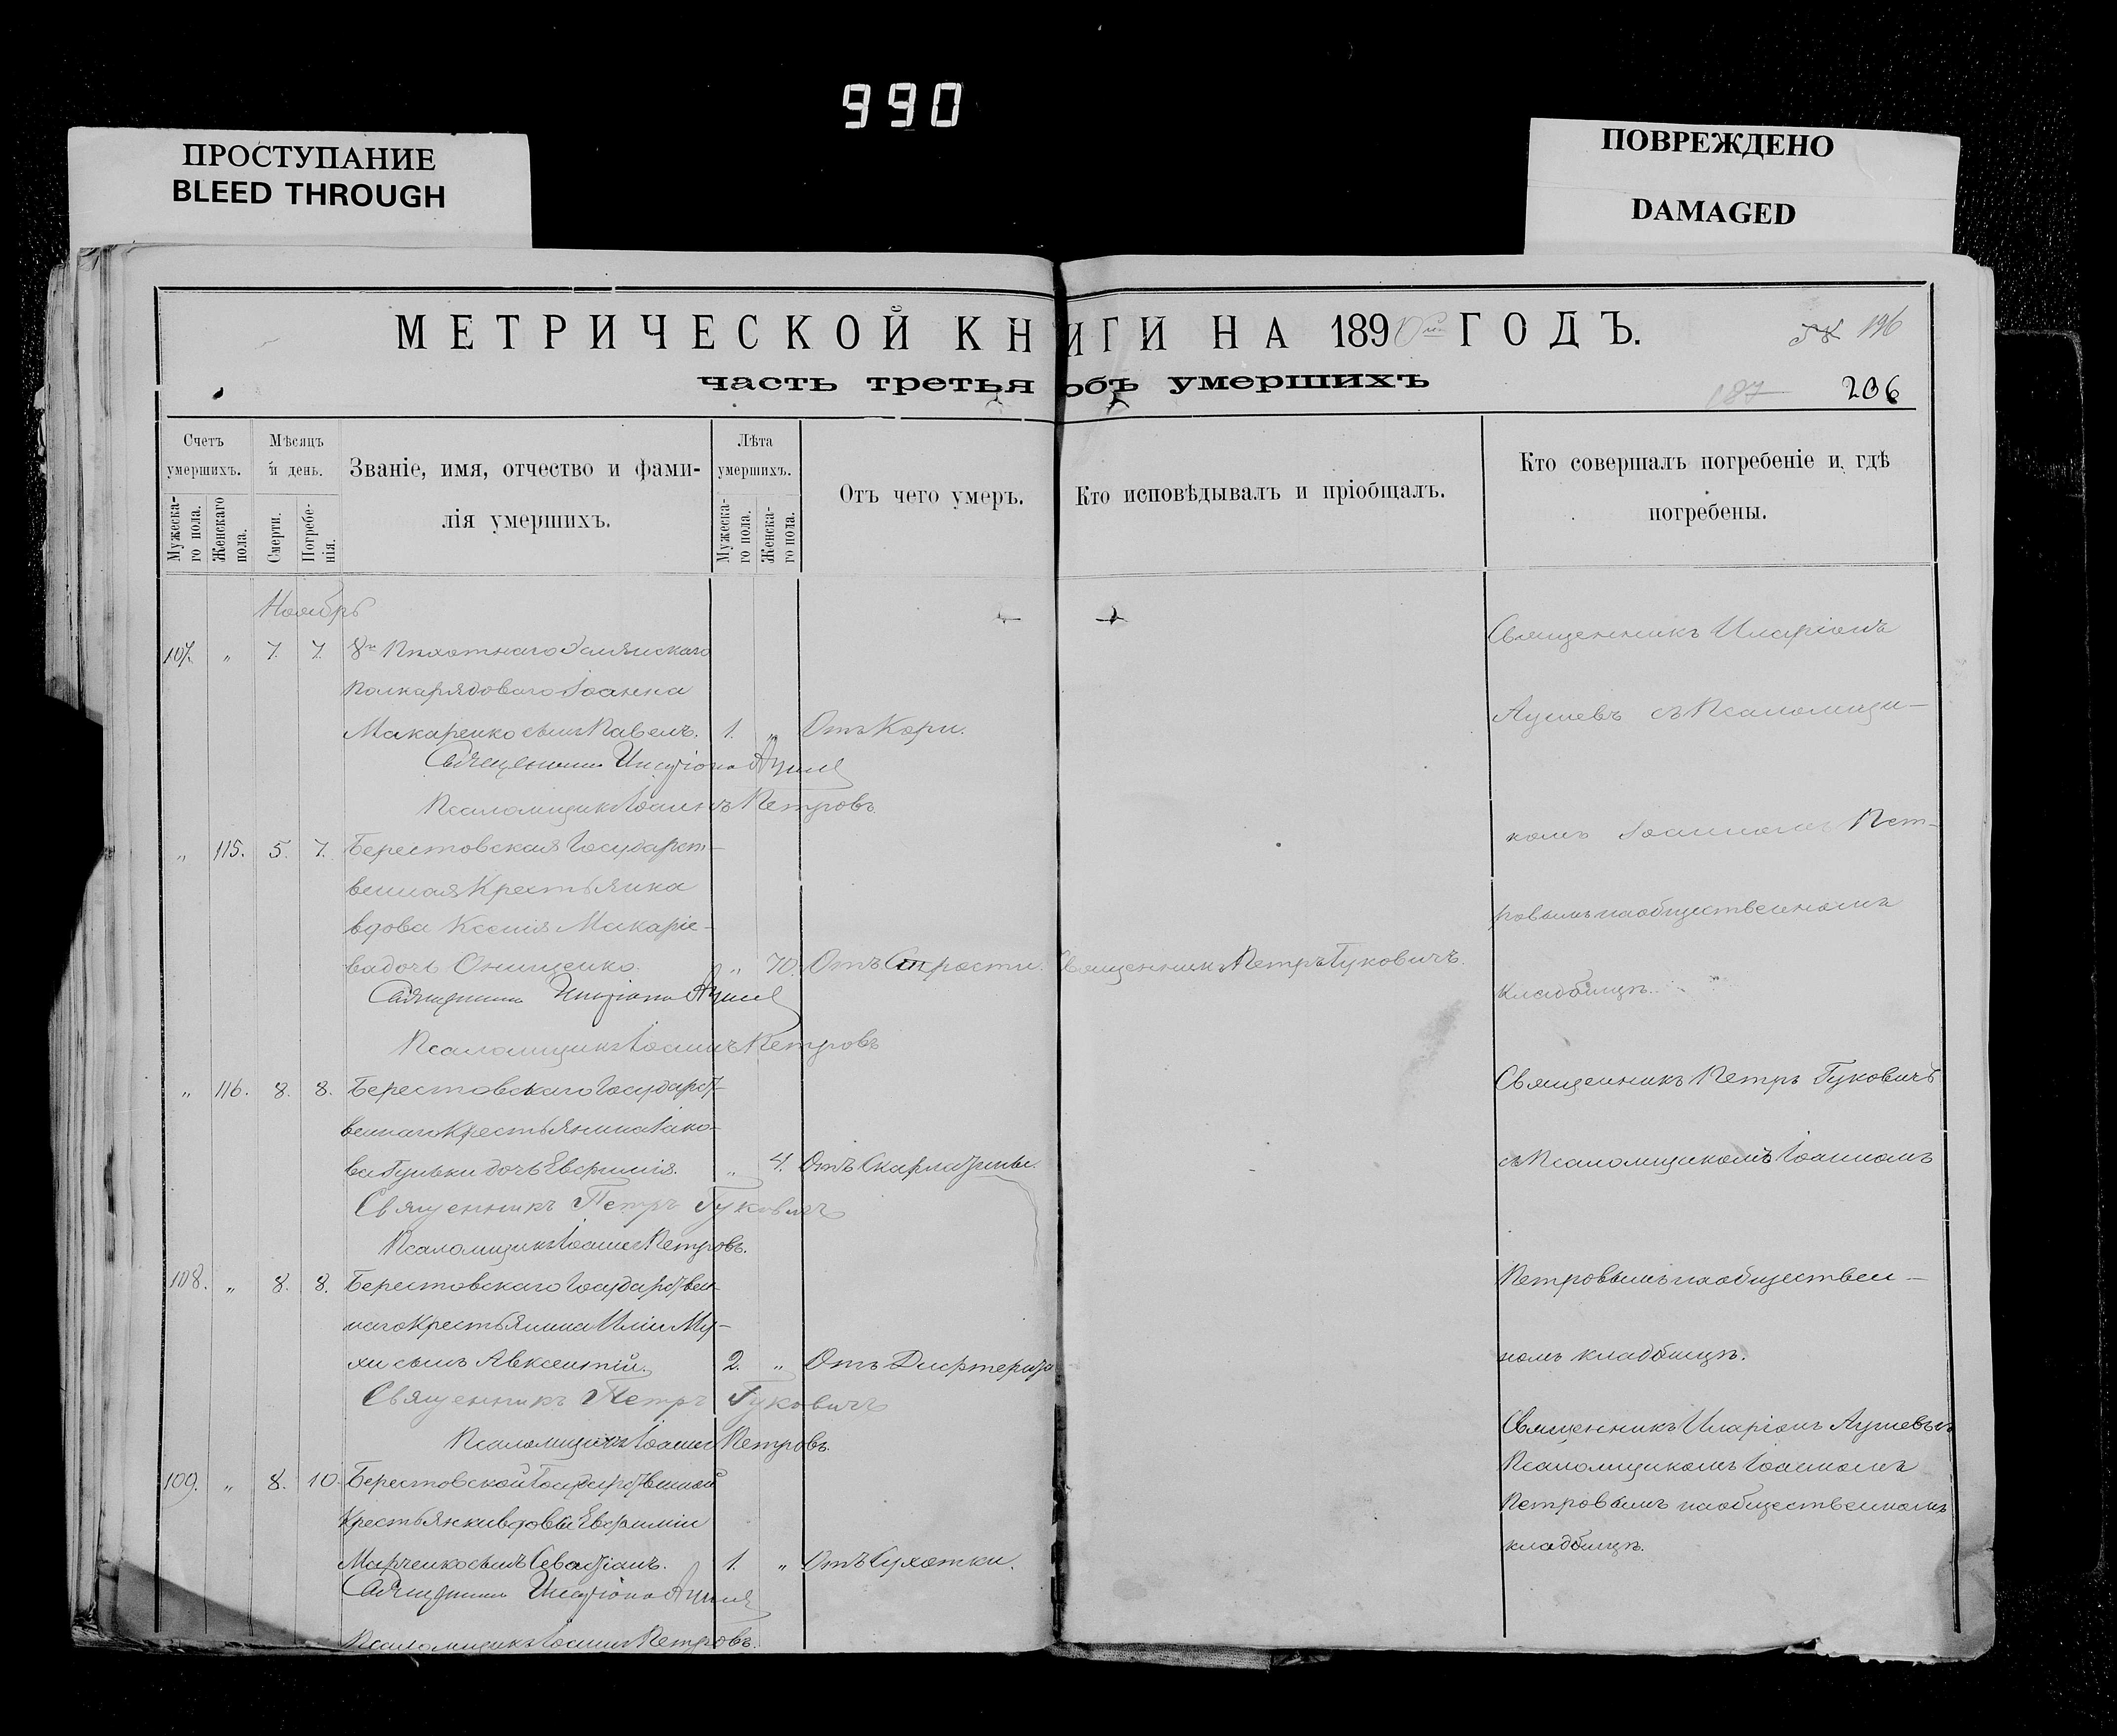 990
ПРОСТУПАНИЕ
BLEED THROUGH
ПОВРЕЖДЕНО
DAMAGED
МЕТРИЧЕСКОЙ КНИГИ НА 1890й ГОДЪ.
196
часть третья объ умершихъ
187
206
Счетъ умершихъ.
Мужеска-го пола.
Женскаго пола.
Мѣсяцъ и день.
Смерти.
Погребе-нія.
Званіе, имя, отчество и фами-
лія умершихъ.
Лѣта умершихъ.
Мужеска-го пола.
Женска-го пола.
Отъ чего умеръ.
Кто исповѣдывалъ и пріобщалъ.
Кто совершалъ погребеніе и гдѣ
погребены.
Ноябрь
107. „ 7. 7. 8го Пѣхотнаго
полка рядоваго Іоанна
Макаренко сынъ Павелъ. 1. „ Отъ Кори.
Священникъ Иларіонъ
Псаломщикъ Іоаннъ Петровъ
Священникъ Иларіонъ
съ Псаломщи-
комъ Іоанномъ Пет-
ровымъ на общественномъ
кладбищѣ.
„ 115. 5. 7. Берестовская Государст-
венная Крестьянка
вдова Ксенія Макаріе-
ва дочь Онищенко. „ 70. Отъ Старости. Священникъ Петръ Гуковичъ.
Священникъ Иларіонъ
Псаломщикъ Іоаннъ Петровъ
„ 116. 8. 8. Берестовскаго Государст-
веннаго Крестьянина Іако-
ва дочь Евфимія. „ 4. Отъ Скарлатины.
Священникъ Петръ Гуковичъ
Псаломщикъ Іоаннъ Петровъ.
Священникъ Петръ Гуковичъ
съ Псаломщикомъ Іоанномъ
Петровымъ на обществен-
номъ кладбищѣ.
108. „ 8. 8. Берестовскаго Государствен-
наго Крестьянина Иліи Му-
хи сынъ Авксентій. 2. „ Отъ Дифтерита
Священникъ Петръ Гуковичъ
Псаломщикъ Іоаннъ Петровъ.
109. „ 8. 10. Берестовской Государственной
Крестьянки вдовы Евфиміи
Марченко сынъ Севастіанъ. 1. „ Отъ Сухотки.
Священникъ Иларіонъ
Псаломщикъ Іоаннъ Петровъ.
Священникъ Иларіонъ
Псаломщикомъ Іоанномъ
Петровымъ на общественномъ
кладбищѣ.